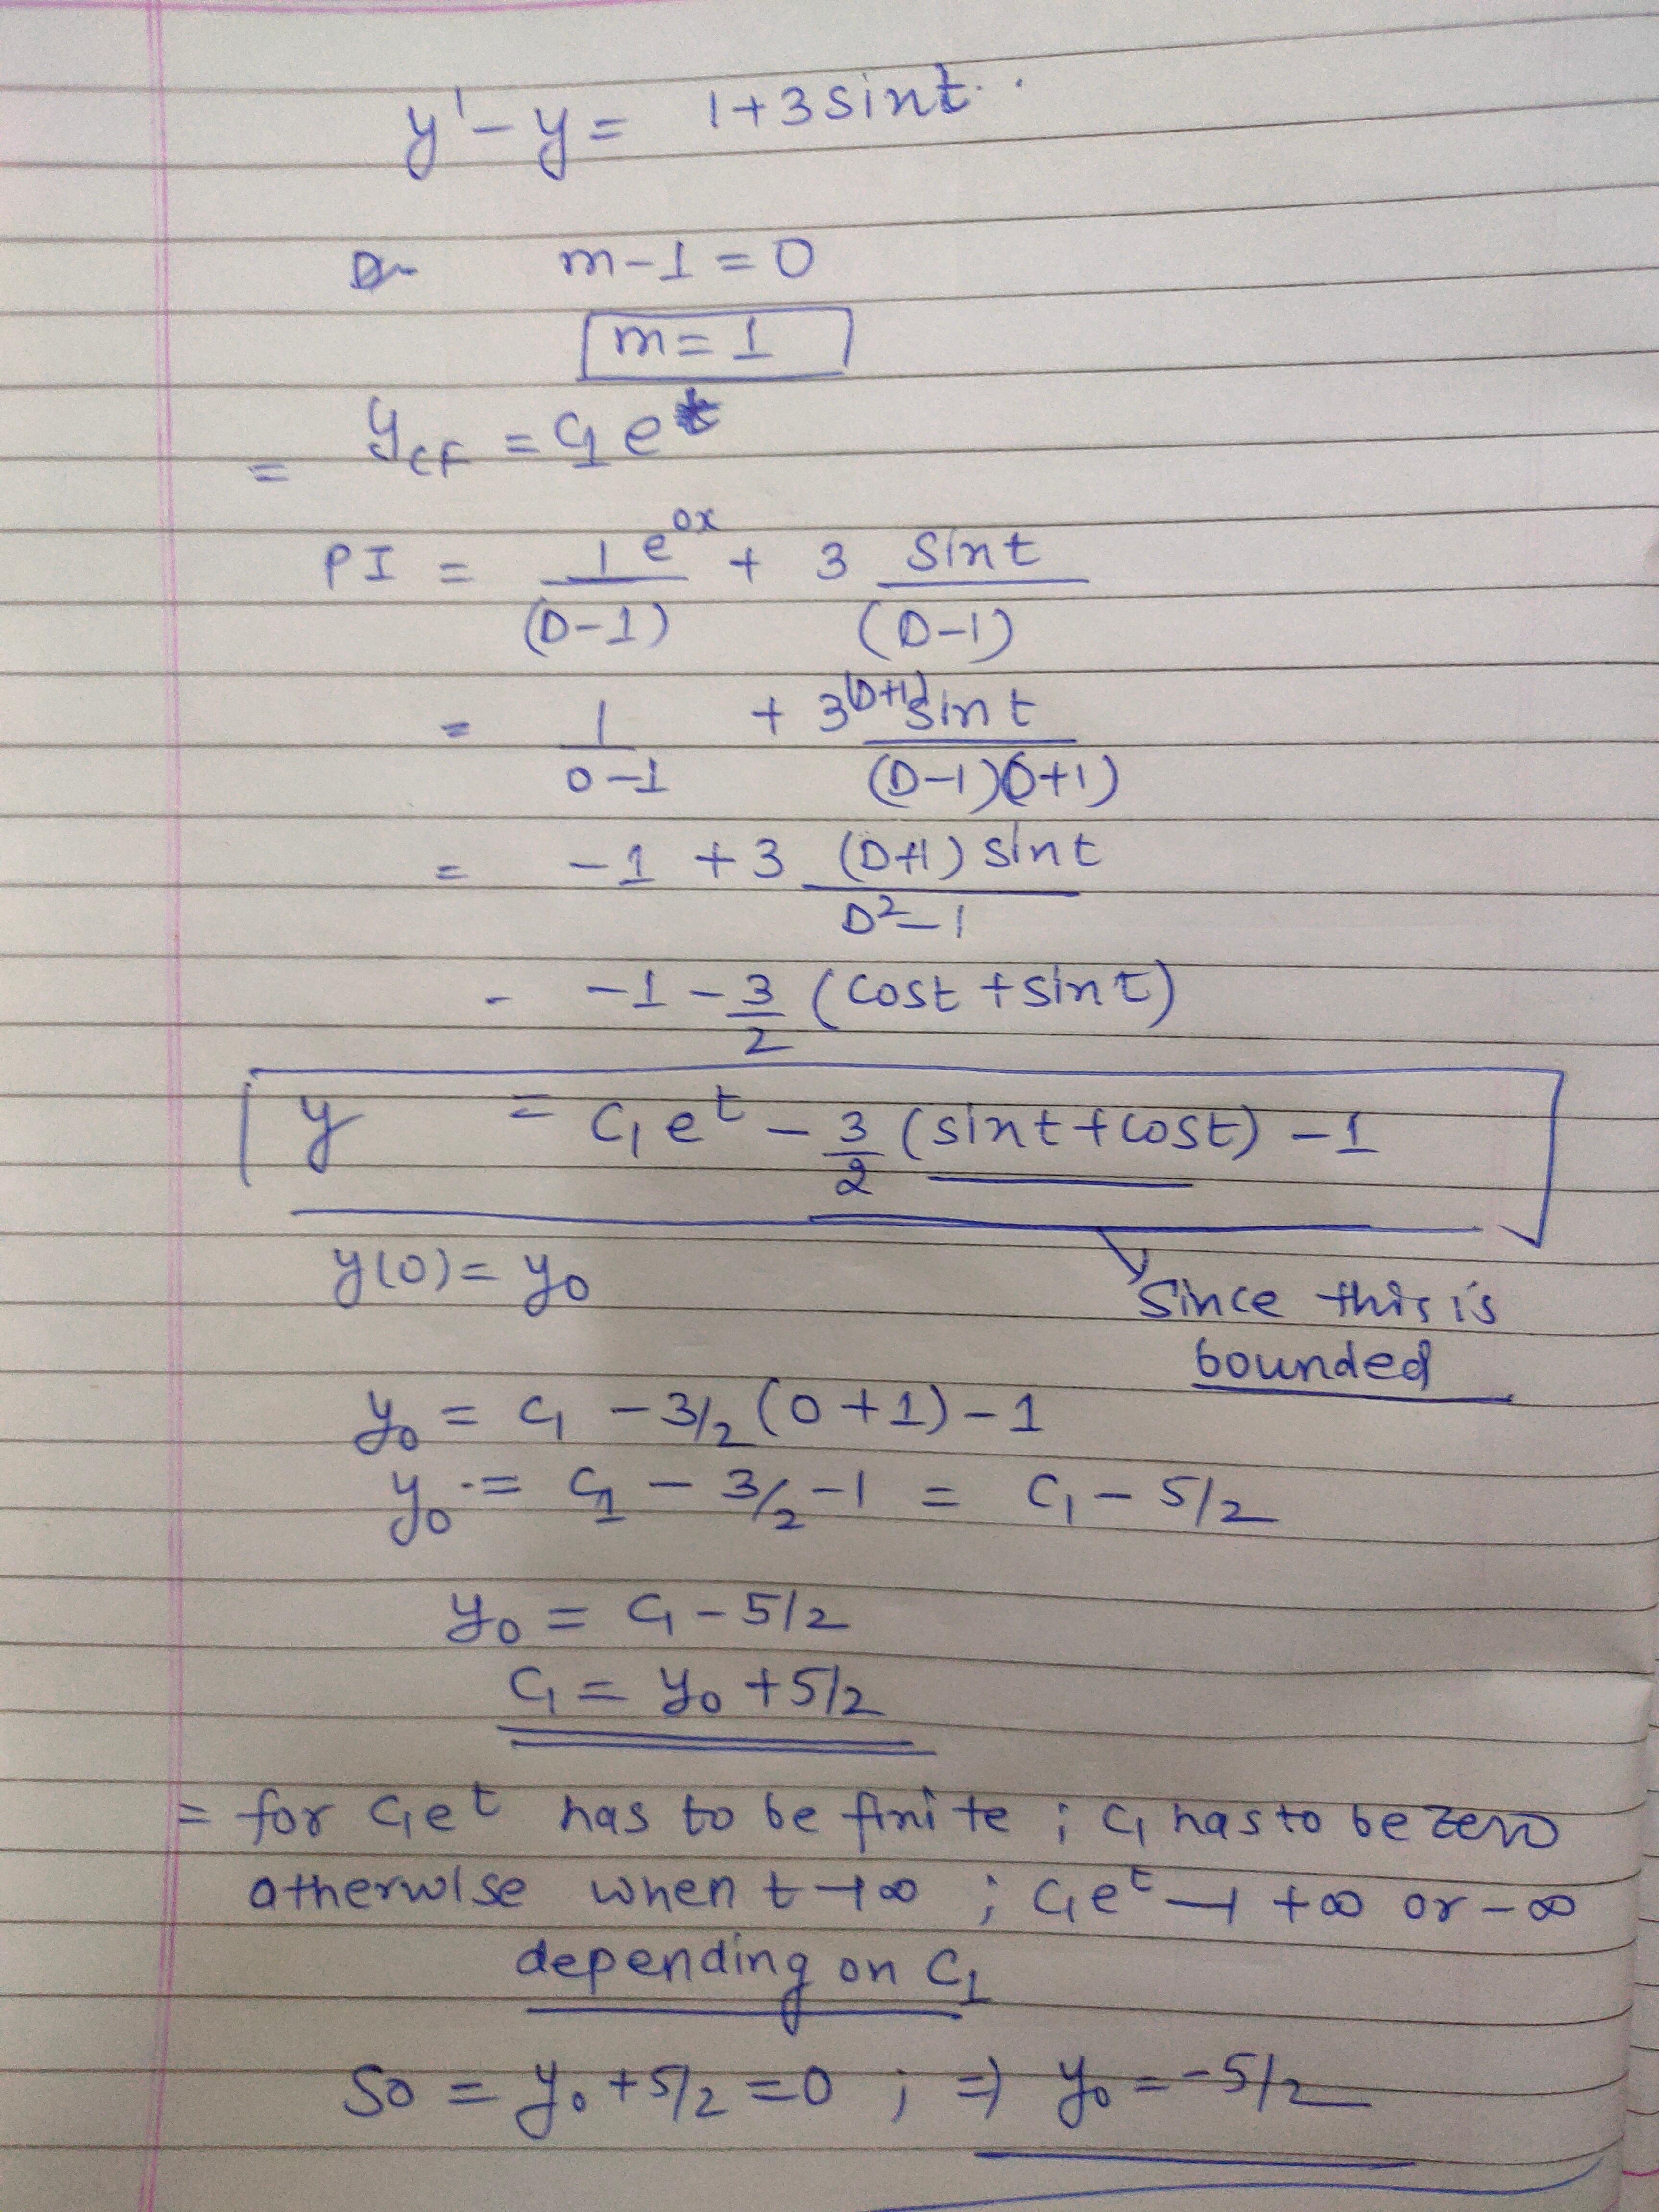 y' - y = 1+3sint
m-1=0
m=1
= y_CF = C₁e^t
PI = 1 e^0x/(D-1) + 3 sint/(D-1)
= 1/(0-1) + 3(D+1)sint/((D-1)(D+1))
= -1 +3 (D+1) sint/(D²-1)
- -1 - 3/2 (cost + sint)
y = C₁e^t - 3/2 (sint+cost) - 1
y(0) = y₀
Since this is
bounded
y₀ = C₁ - 3/2 (0+1) - 1
y₀ = C₁ - 3/2 - 1 = C₁ - 5/2
y₀ = C₁ - 5/2
C₁ = y₀ + 5/2
= for C₁e^t has to be finite ; C₁ has to be zero
otherwise when t→∞ ; C₁e^t → +∞ or -∞
depending on C₁
So = y₀ + 5/2 = 0 ; ⇒ y₀ = -5/2